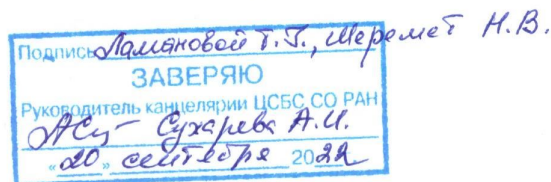 Подпись Ламановой Т.Г., Шеремет Н.В.
ЗАВЕРЯЮ
Руководитель канцелярии ЦСБС СО РАН
Сухарева А.И.
«20» сентября 2022